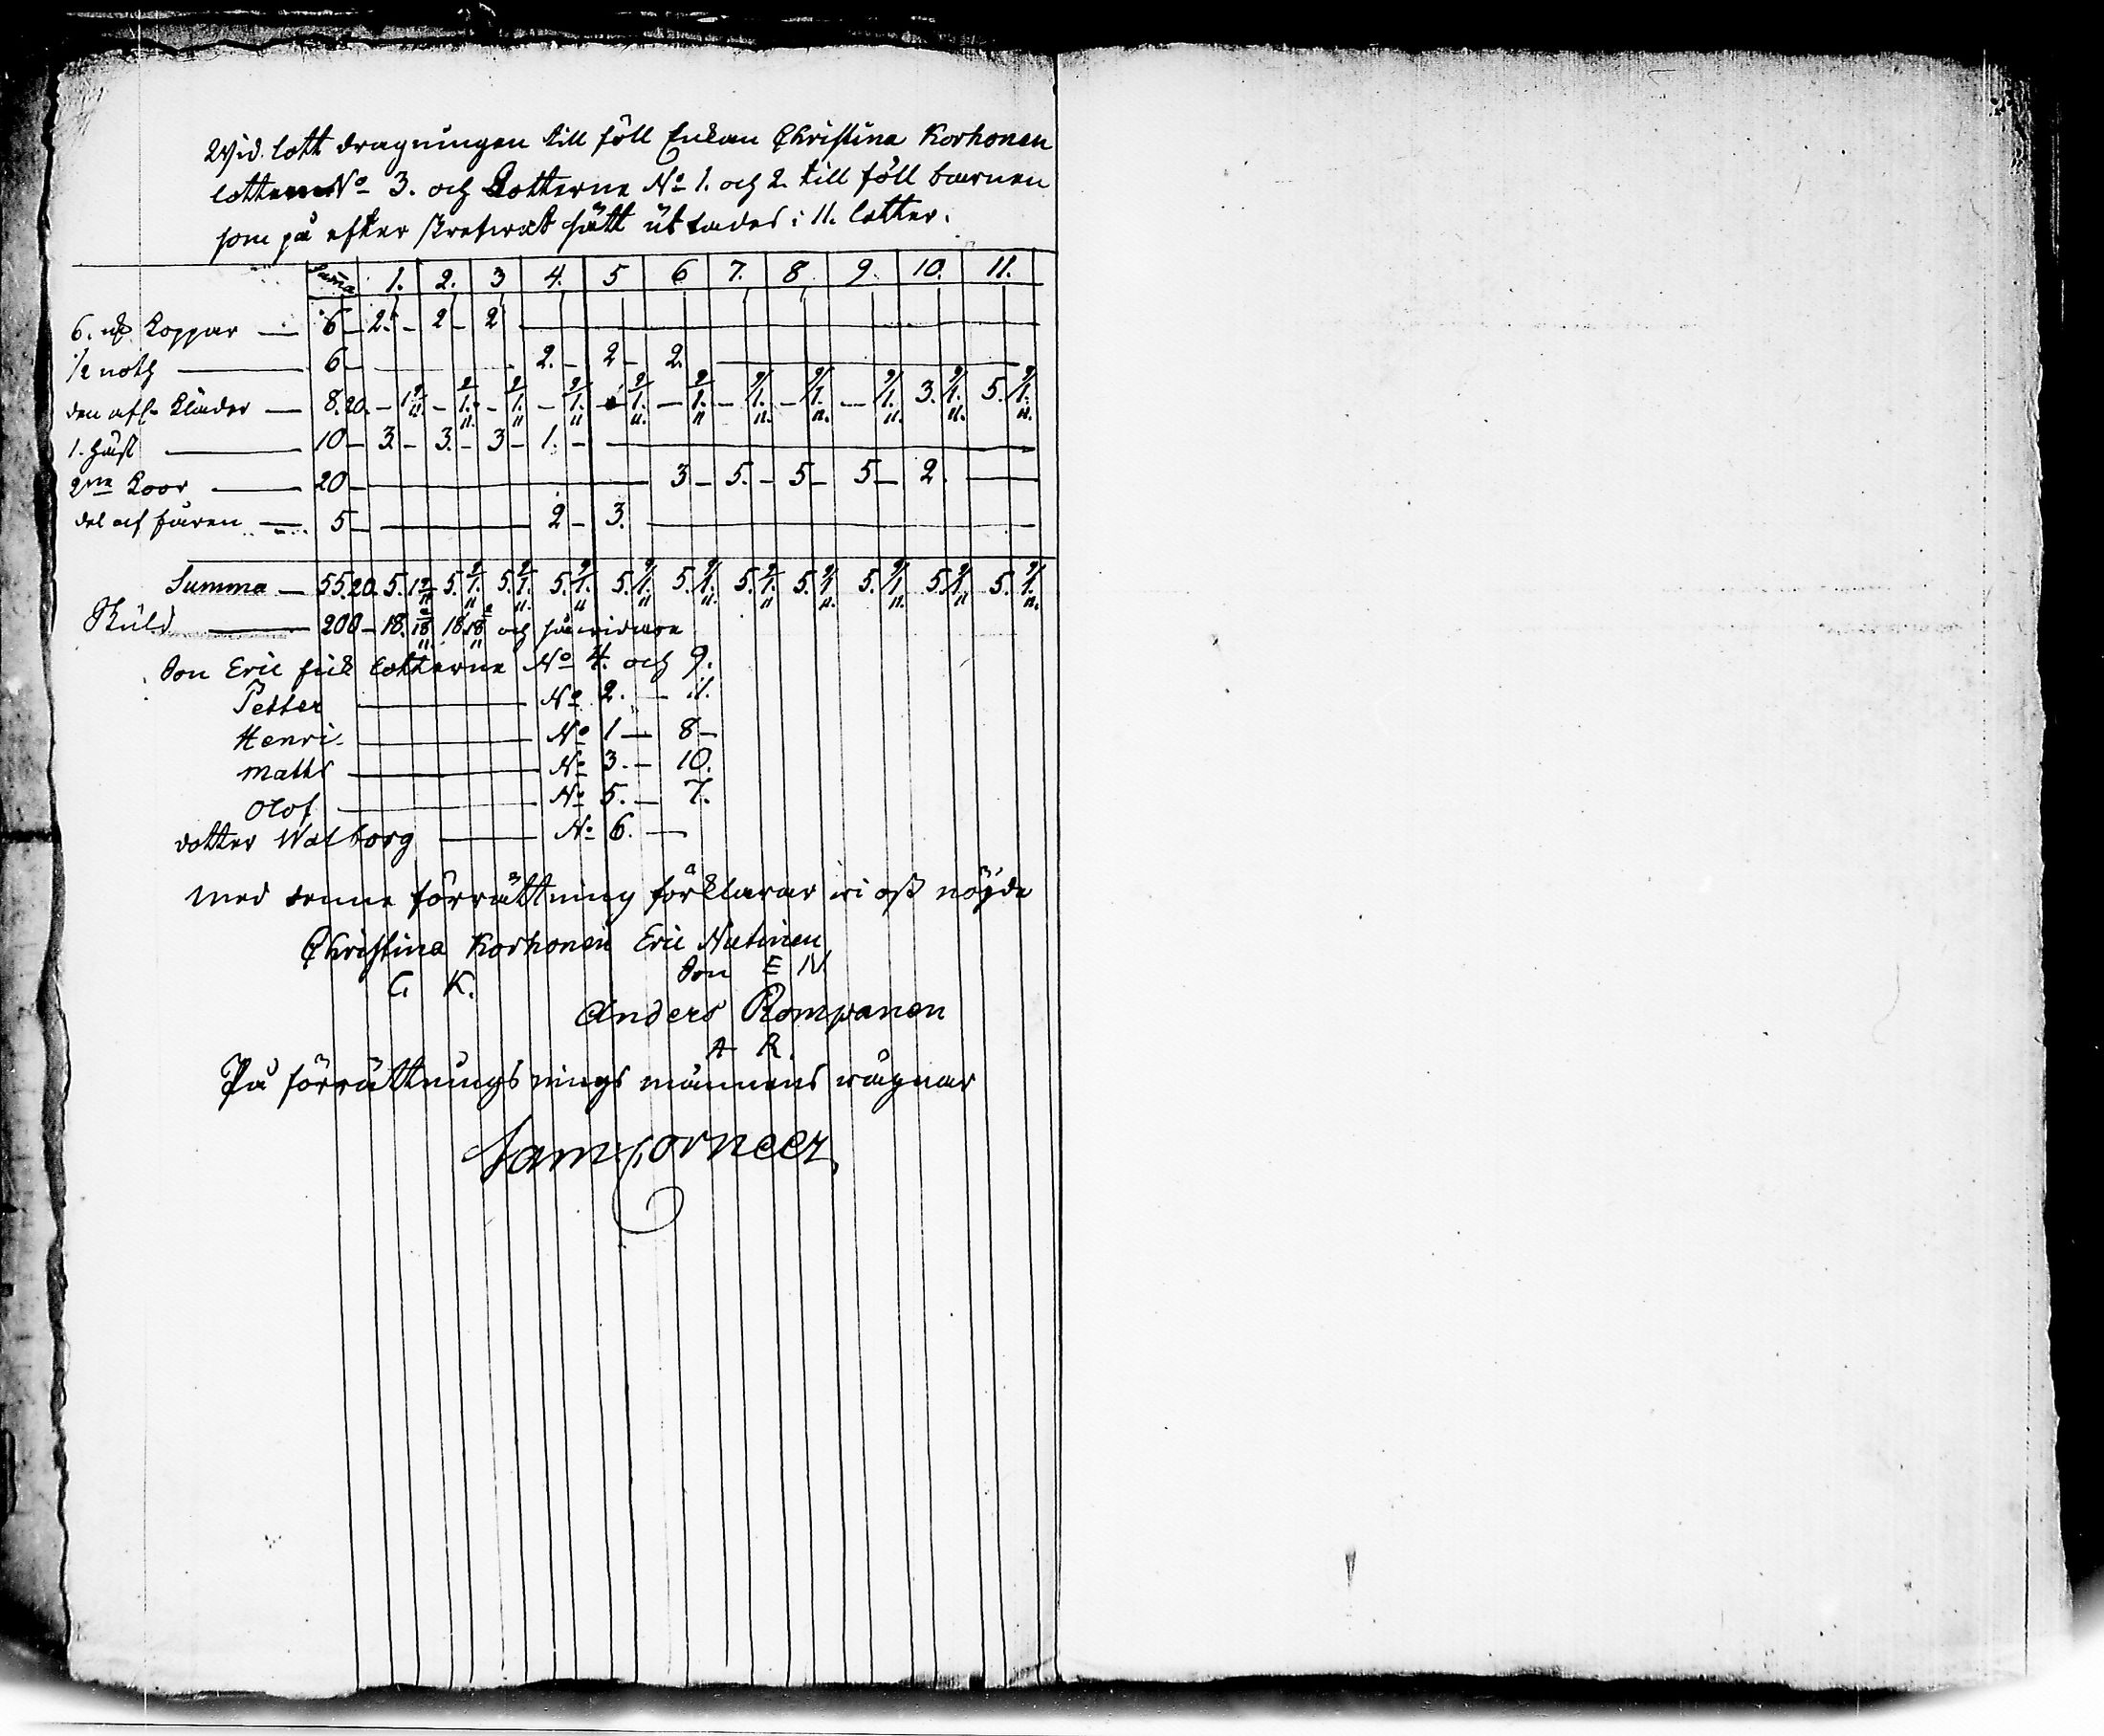 Wid lott dragningen till föll Enkan Christina Korhonen
lotten No 3. och Lotterne No 1. och 2. till föll barnen
som på efter skrefwit sätt utlades i 11. lotter.
Summa 1. 2. 3 4. 5 6 7. 8 9. 10. 11.
6. ℔ Koppar — 6 – 2. – 2 – 2
1/2 noth — 6 – 2. – 2 – 2.
den afl. Kläder — 8. 20. – 1 9/11 – 1. 9/11 – 1. 9/11 – 1. 9/11 – 1. 9/11 – 1. 9/11 – 1. 9/11 – 1. 9/11 – 1. 9/11 3. 1. 9/11 5. 1. 9/11
1. häst — 10 – 3 – 3. – 3 – 1. –
2ne Koor — 20 – 3 – 5. – 5 – 5 – 2.
del af fåren — 5 – 2 – 3.
Summa — 55. 20. 5. 1 9/11 5. 1. 9/11 5. 1. 9/11 5. 1. 9/11 5. 1. 9/11 5. 1. 9/11 5. 1. 9/11 5. 1. 9/11 5. 1. 9/11 5. 1. 9/11 5. 1. 9/11
Skuld — 200 – 18. 18 18. 18 och så widare
Son Eric fick lotterne No 4. och 9.
Petter — No 2. — 11.
Henri — No 1 — 8 –
Matts — No 3. – 10.
Olof — No 5. — 7.
dotter Walborg — No 6. —
Med denne förrättning förklarar wi oss nöyde
Christina Korhonen Eric Nutinen
C. K. Son E N
Anders Rompanen
A R.
På förrättnings nings männens wägnar
Sam: Forneer